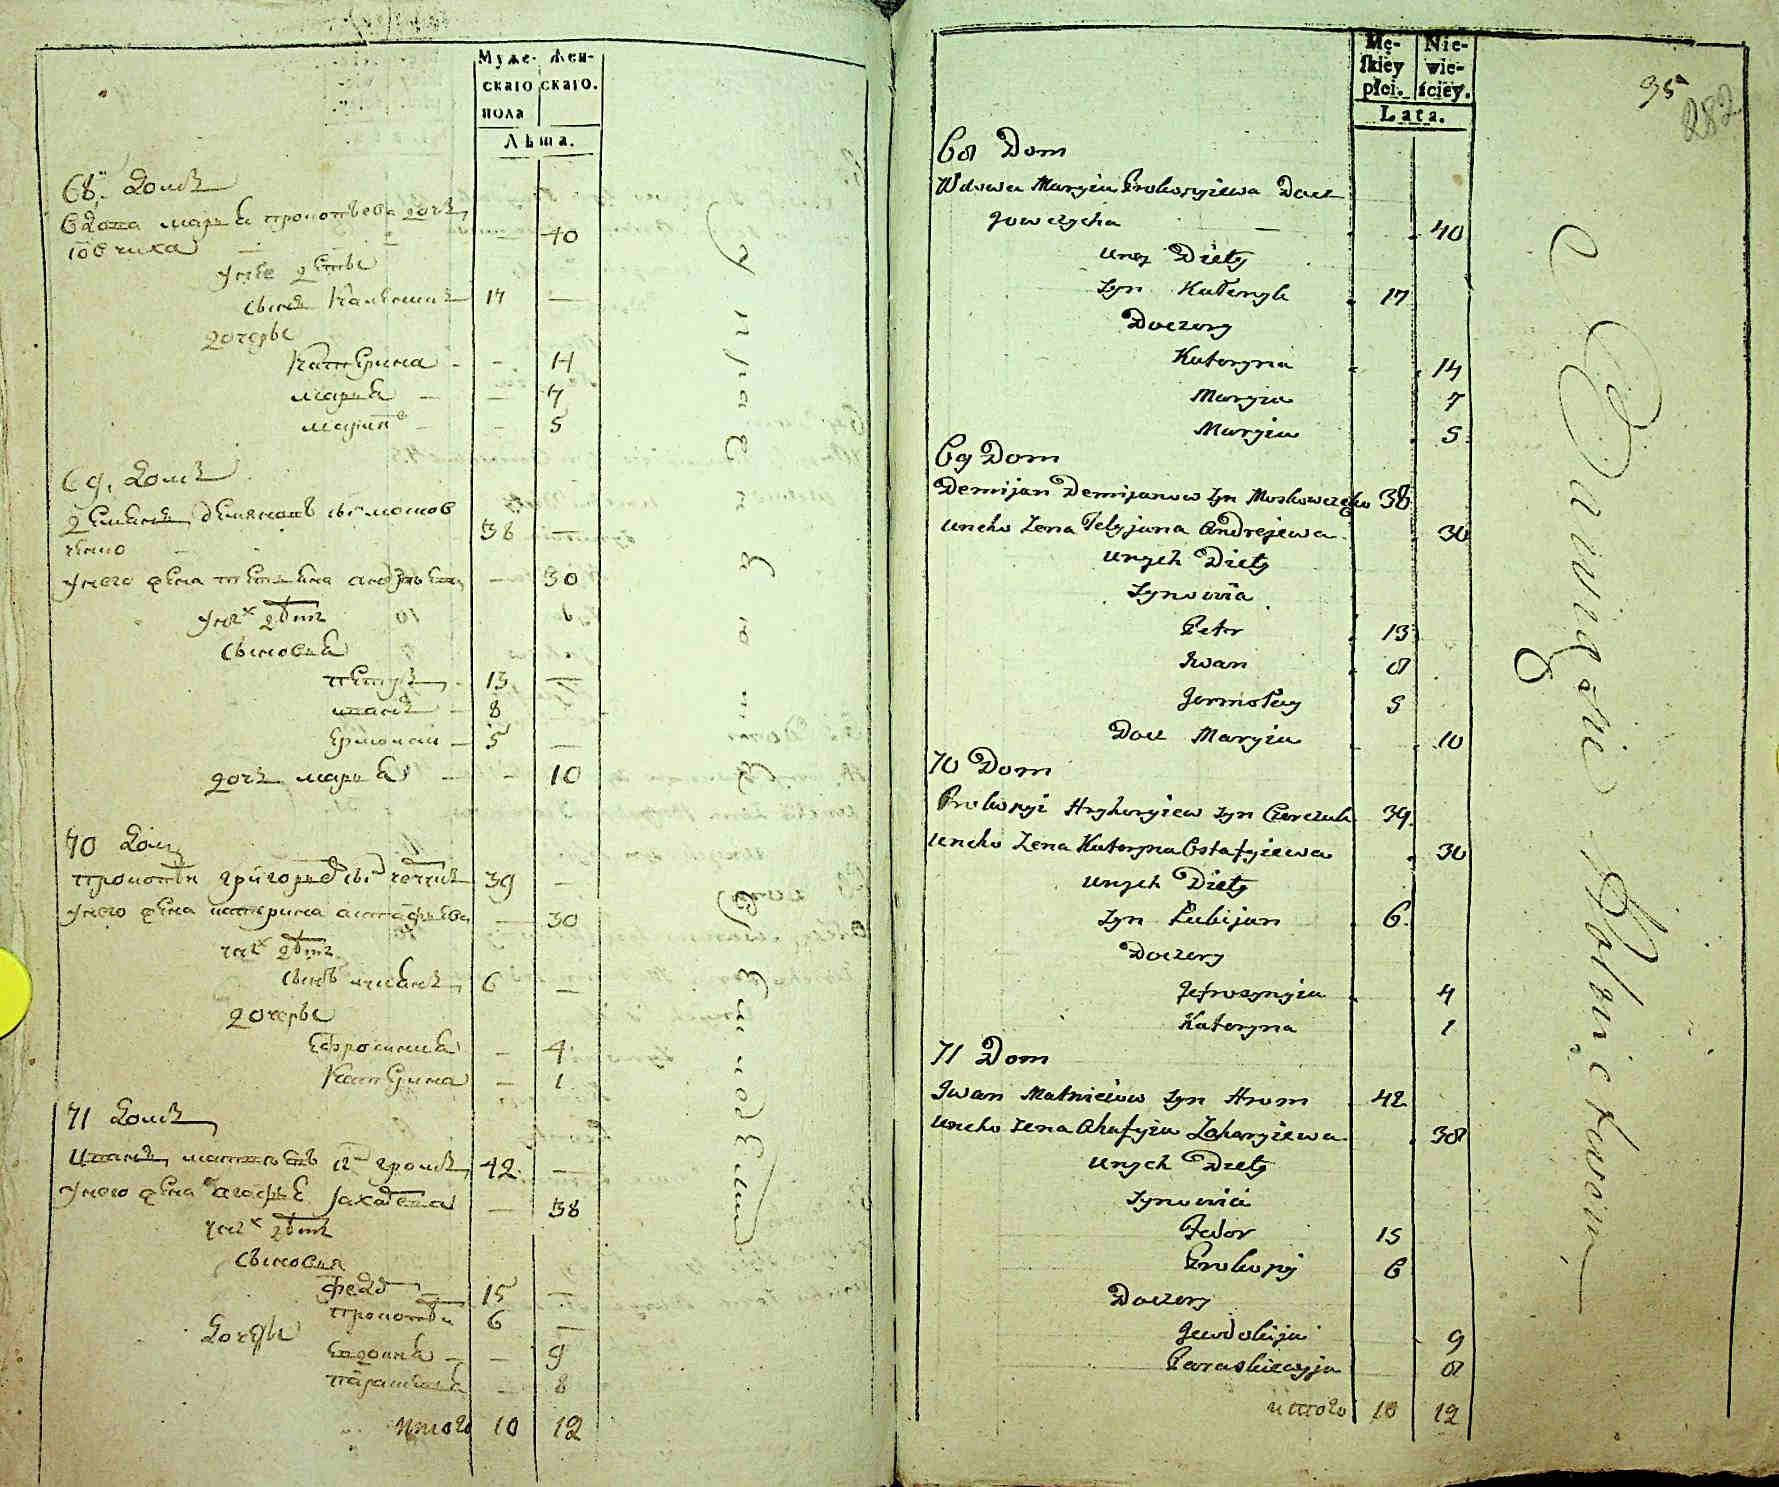 Муже-
скаго
пола
Жен-
скаго.
Лѣта.
68. Домъ
вдова марья прокопьева дочь - 40
ювчиха
у нее дѣти
сынъ 17 —
дочери
Катерина - - 14
марья — — 7
марья - - 5
69. Домъ
демьянъ демяновъ сынъ москов 38 —
ченко
у него жена татьяна андреева — 30
у них дѣти
сыновья
петръ - 13 —
иванъ - 8
ермолай — 5 —
дочь марья — - 10
70 Домъ
прокопий григорьев сынъ 39 —
у него жена катерина астафьева — 30
у них дѣти
сынъ 6 —
дочери
Ефросиния - 4
Катерина — 1
71 Домъ
иванъ матвеевъ сынъ громъ 42 —
у него жена агафья захарова — 38
у них дѣти
сыновья
федор - 15 —
прокопий 6 —
дочери
евдокия — - 9
парасковья - 8
итого 10 12
Mę-
skiey
płci.
Nie-
wie-
ściey.
Lata.
95
282
68 Dom
Wdowa Maryia Prokopyiewa Docz
Jowczycha — 40
uney Diety
Syn 17
Doczery
Kateryna 14
Maryia 7
Maryia 5
69 Dom
Demijan Demijanow Syn Moskowczenko 38
uneho Żena Tetyjana Andrejewa 30
unych Diety
Synowia
Petr 13
Iwan 8
Jermołay 5
Docz Maryia 10
70 Dom
Prokopyi Hryhoryiew Syn 39
uneho Żena Kateryna Ostafyiewa 30
unych Diety
Syn Łukijan 6
Doczery
Jefrosynyia 4
Kateryna 1
71 Dom
Iwan Matwieiow Syn Hrom 42
uneho Żena Ahafyia Zaharyiewa 38
unych Diety
Synowia
Fedor 15
Prokopy 6
Doczery
Jewdokija 9
Paraskiewyja 8
итого 10 12